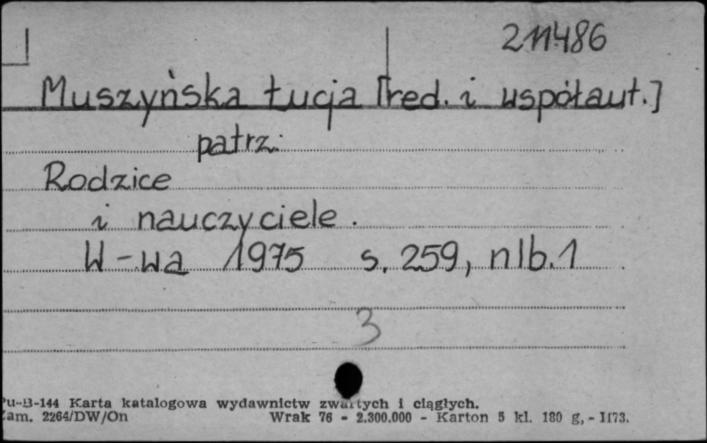 211486
Muszyńska Łucja [red. i współaut.]
patrz:
Rodzice
i nauczyciele.
W-wa 1975 s. 259, nlb.1
3
Pu-B-144 Karta katalogowa wydawnictw zwartych i ciągłych.
Zam. 2264/DW/On Wrak 76 - 2.300.000 - Karton 5 kl. 180 g, - II73.